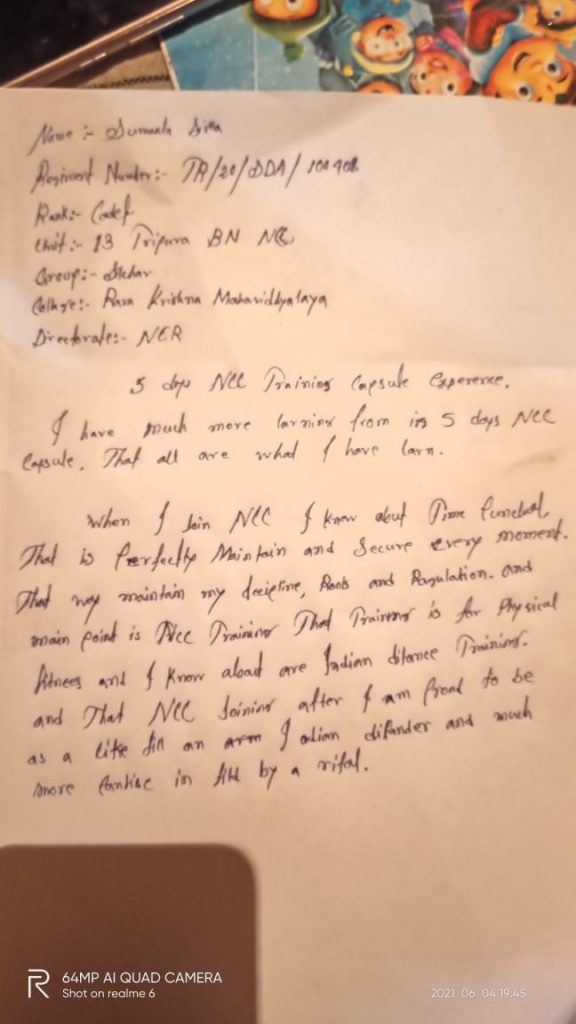 Name :- Sumanta
Regiment Number:- TR/20/SDA/100408
Rank:- Cadet
Unit:- 13 Tripura BN NCC
Group:- Silchar
Collage:- Rama Krishna Mahavidhyalaya
Directorate:- NER
5 days NCC Training Capsule Experence.
I have much more larning from in 5 days NCC
Capsule. That all are what I have larn.
When I Join NCC I know about Time Punctual.
That is Perfectly Maintain and Secure every moment.
That way maintain my decipline, and Ragulation. and
main point is NCC Training That Training is for Physical
fitnees and I know about are Indian difance Training.
and That NCC Joining after I am Proud to be
as a like an Indian difander and much
more in by a rifal.
64MP AI QUAD CAMERA
Shot on realme 6
2021/06/04 19:45